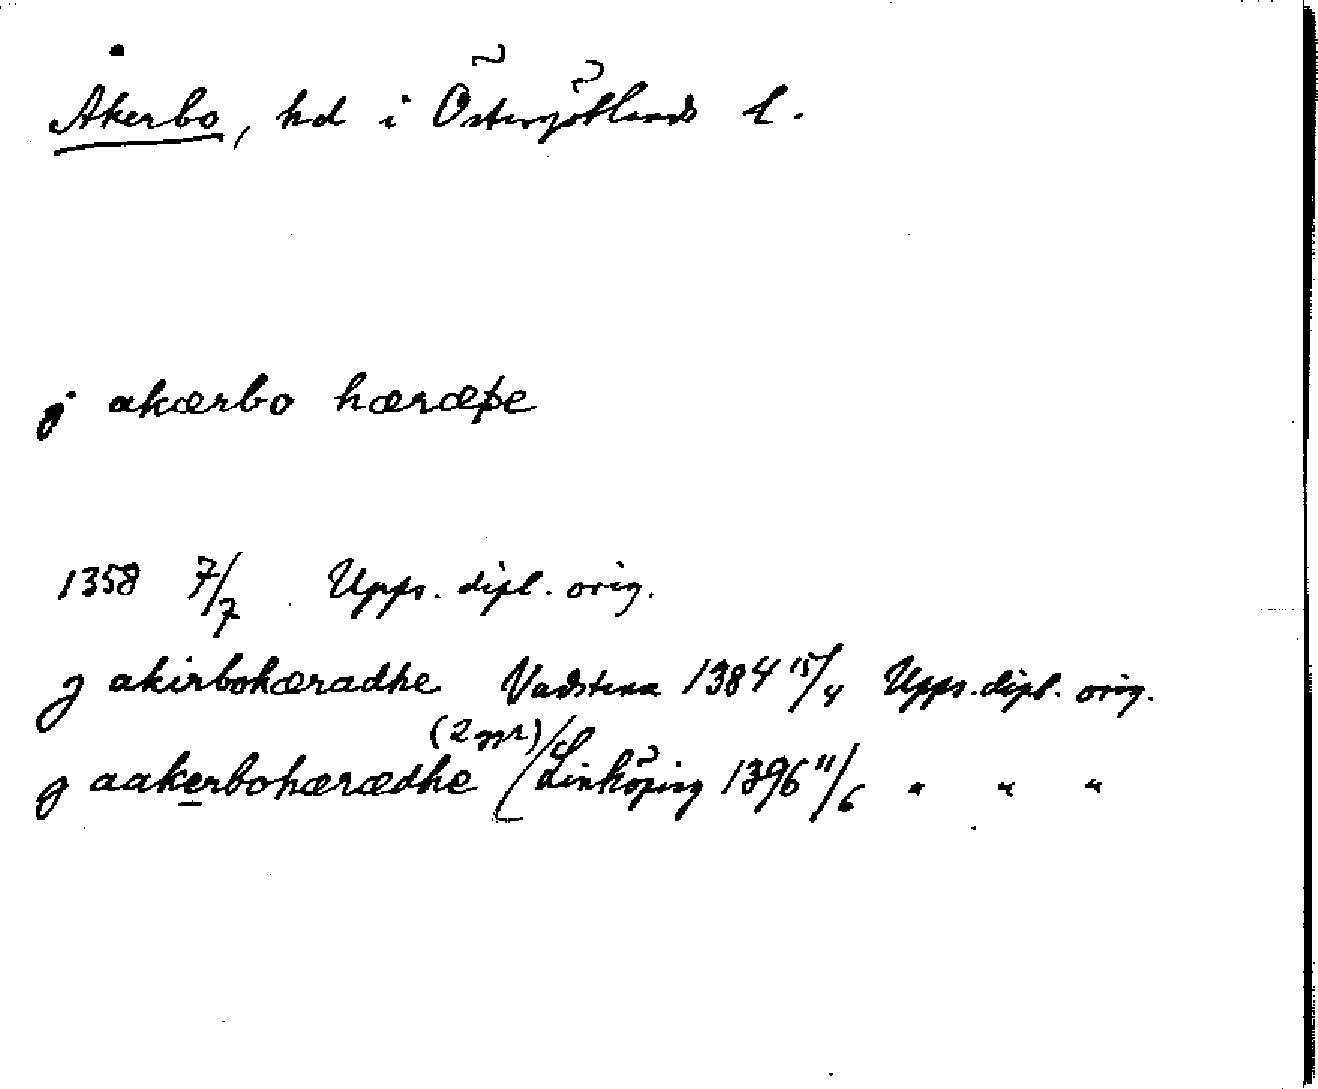 Åkerbo, hd i Östergötlands l.
j akærbo hæræþe
1358 7/7 Upps. dipl. orig.
j akirbohæradhe Vadstena 1384 15/4 Upps. dipl. orig.
(2 ggr)
j aakerbohærædhe Linköping 1396 11/6 " " "